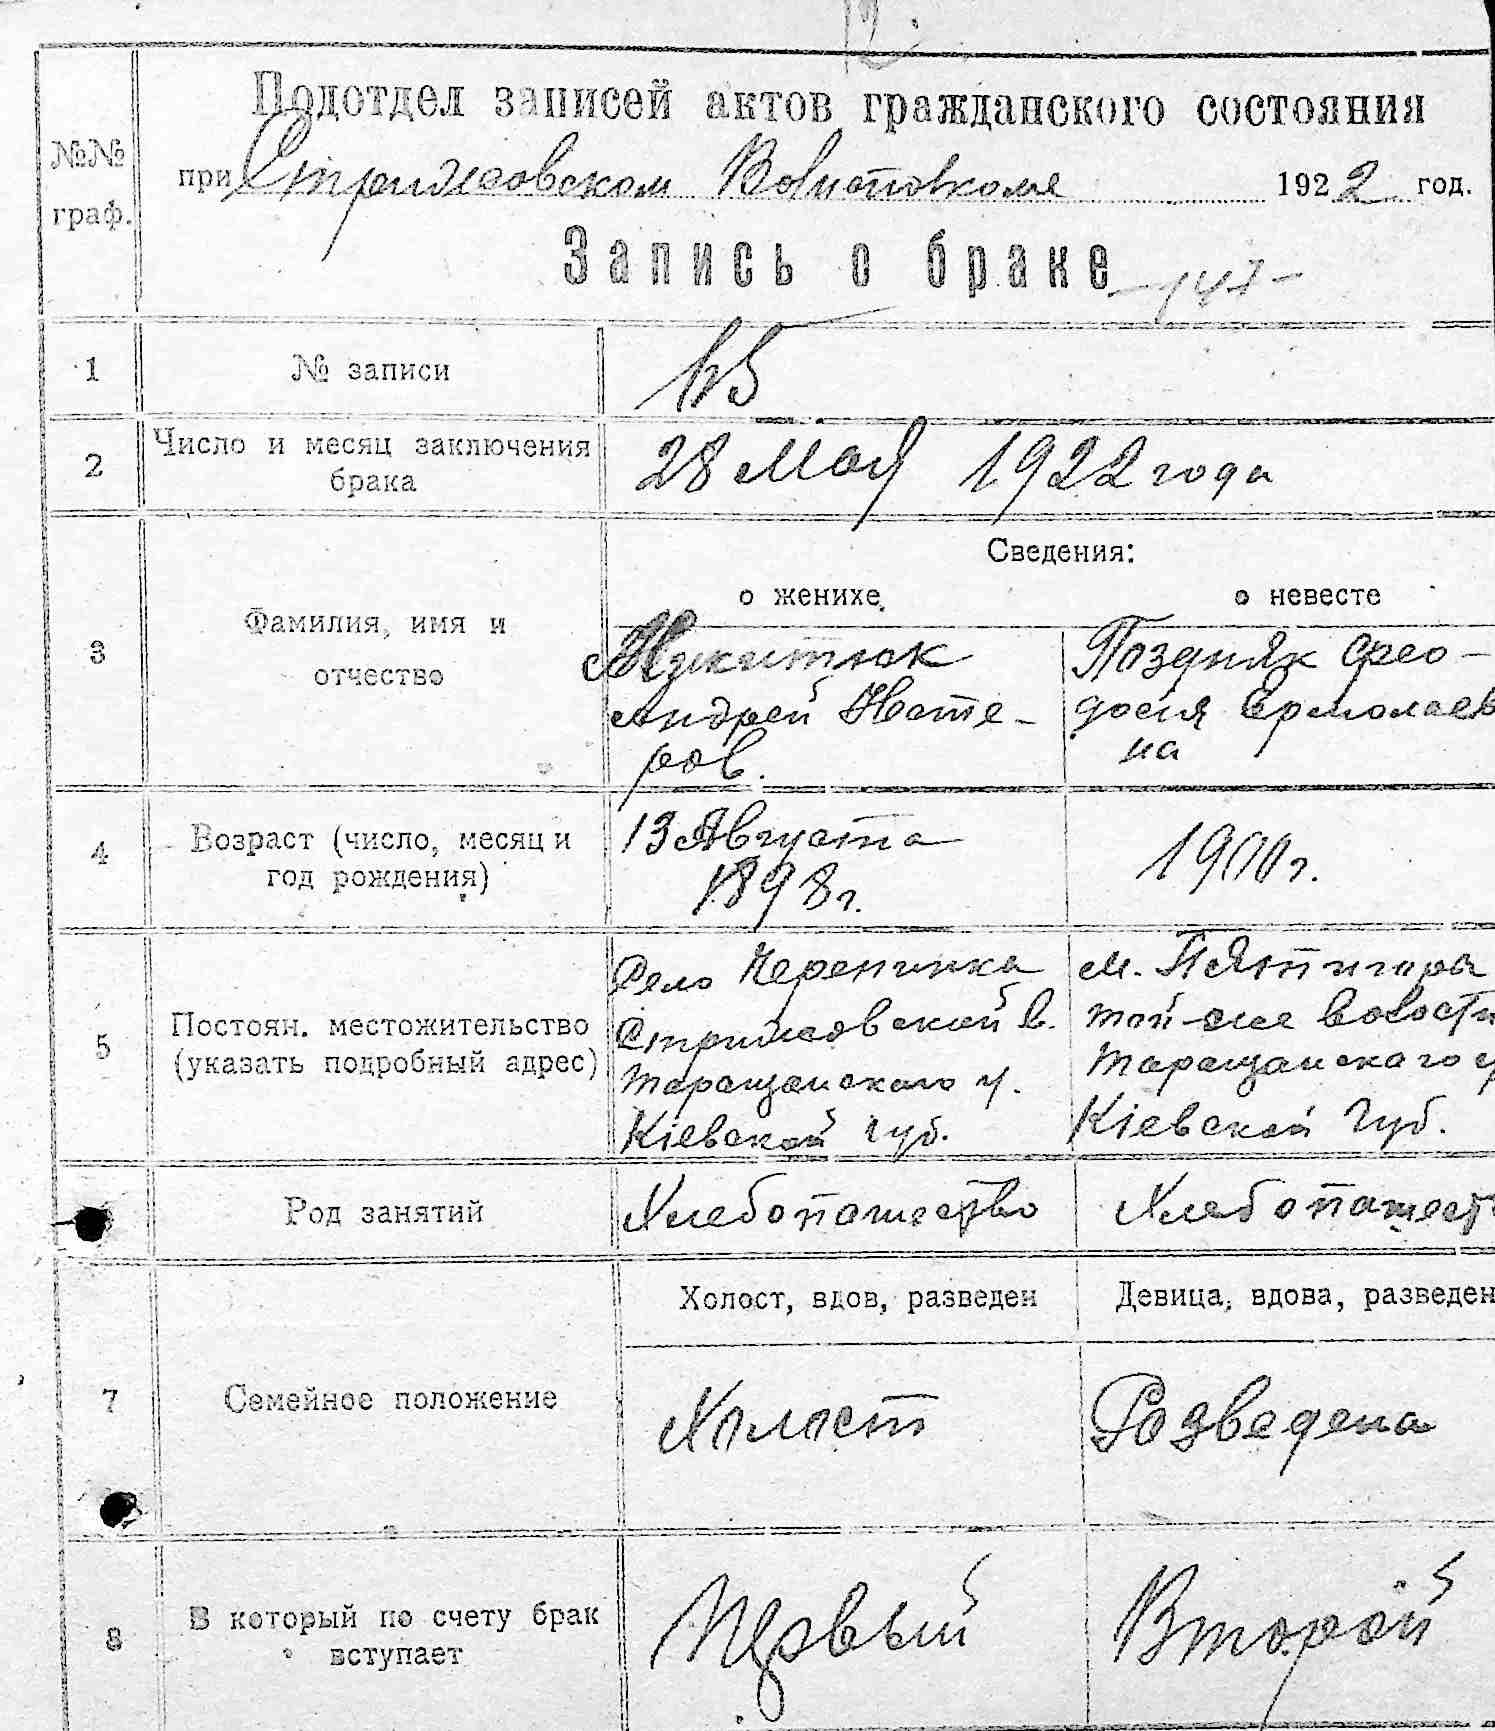 Подотдел записей актов гражданского состояния
№№ граф.
при Стрижовском Волисповкоме 1922 год.
Запись о браке
1 № записи
2 Число и месяц заключения брака 28 Мая 1922 года
Сведения:
о женихе о невесте
3 Фамилия, имя и отчество
Андрей Несте-
ров.
Поздняк Фео-
досия Ермолаев
на
4 Возраст (число, месяц и год рождения)
13 Августа
1898 г.
1900 г.
5 Постоян. местожительство (указать подробный адрес)
Село Черепинка
Стрижовской в.
Таращанскаго у.
Кіевской губ.
м. Пятигоры
той-же волости
Таращанскаго у
Кіевской Губ.
Род занятий
Хлебопашество Хлебопашест
Холост, вдов, разведен Девица, вдова, разведен
7 Семейное положение
Холост Розведена
8 В который по счету брак вступает
Первый Второй